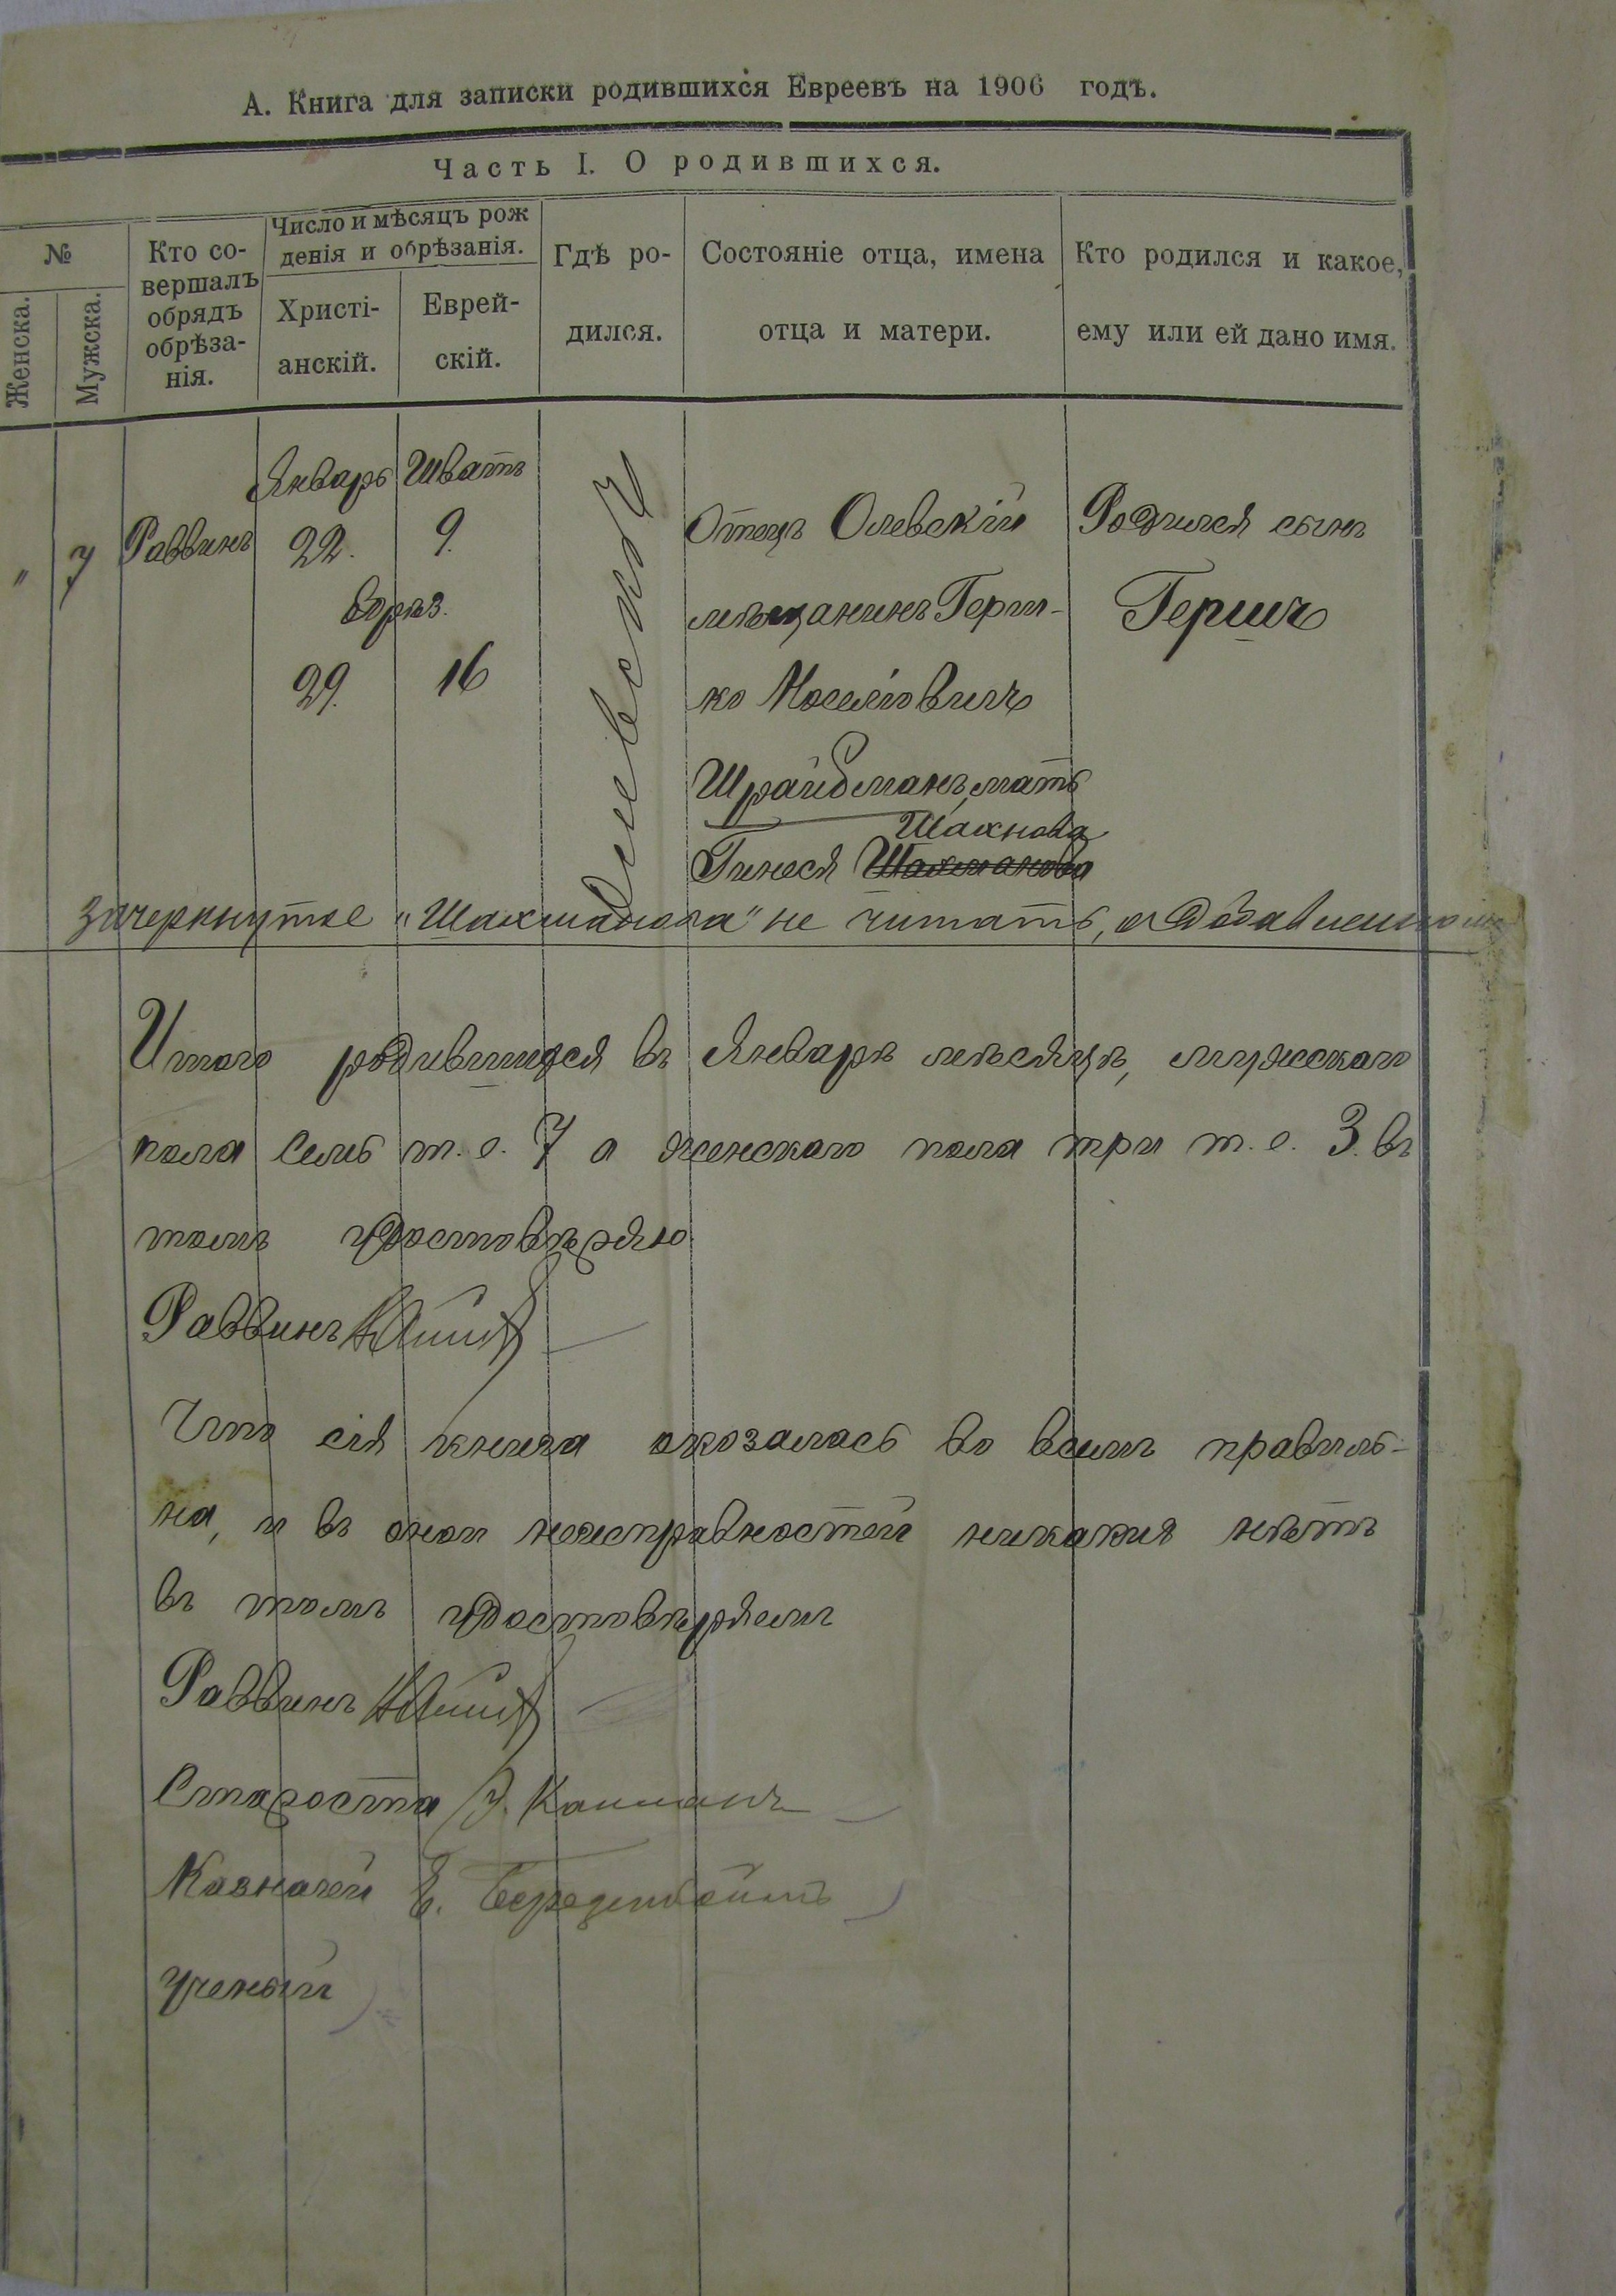 А. Книга для записки родившихся Евреевъ на 1906 годъ.
Часть I. О родившихся.
№
Женска.
Мужска.
Кто со-
вершалъ
обрядъ
обрѣза-
нія.
Число и мѣсяцъ рож
денія и обрѣзанія.
Христі-
анскій.
Еврей-
скій.
Гдѣ ро-
дился.
Состояніе отца, имена
отца и матери.
Кто родился и какое,
ему или ей дано имя.
"
7
Раввинъ
Январь
22.
Шватъ
9.
29.
16
Отецъ Олевскій
мѣщанинъ Герш-
ко Мосеіовичъ
Шрайбманъ, мать
Шахнова
Гинеся Шахманова
Родился сынъ
Гершъ
Зачеркнутое „Шахманова" не читать, а
Итого родившихся въ Январѣ мѣсяцѣ, мужскаго
пола семь т. е. 7 а женскаго пола три т. е. 3. въ
томъ удостовѣряю
Раввинъ
Что сія книга оказалась во всемъ правиль-
на, и въ оной неисправностей никакия нѣтъ
въ томъ удостовѣряемъ
Раввинъ
Староста
Казначей
Ученый